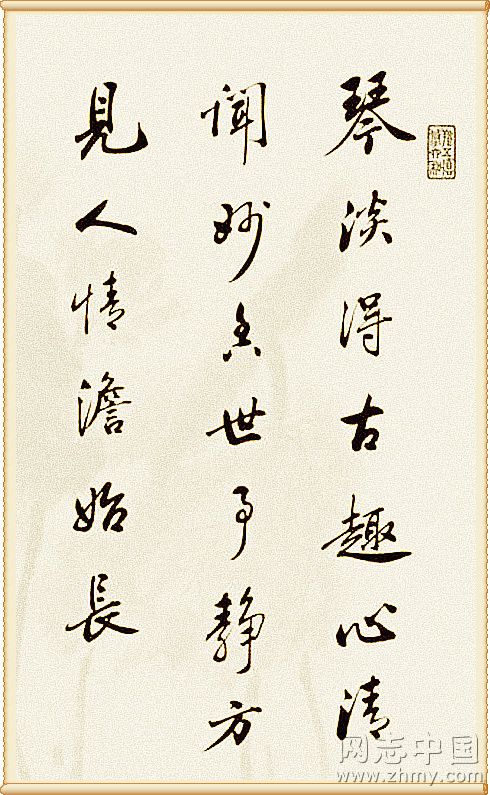 琴淡得古趣心清
聞妙香世事靜方
見人情澹始長
网志中国
www.zhmy.com